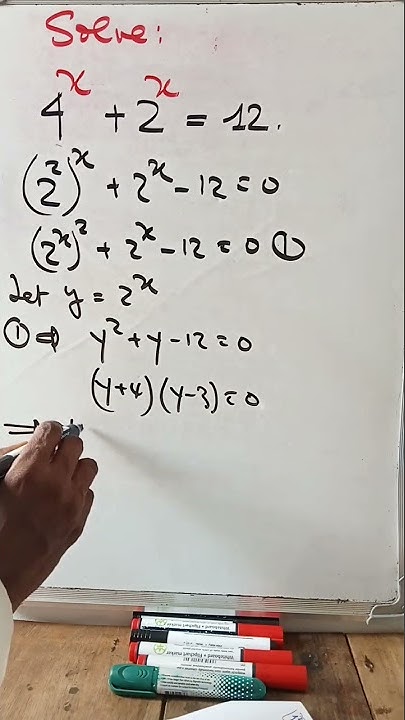 Solve:
4^x + 2^x = 12.
(2^2)^x + 2^x - 12 = 0
(2^x)^2 + 2^x - 12 = 0 ①
Let y = 2^x
① ⇒ y^2 + y - 12 = 0
(y+4)(y-3) = 0
⇒
Whiteboard + Flipchart marker
Whiteboard + Flipchart marker